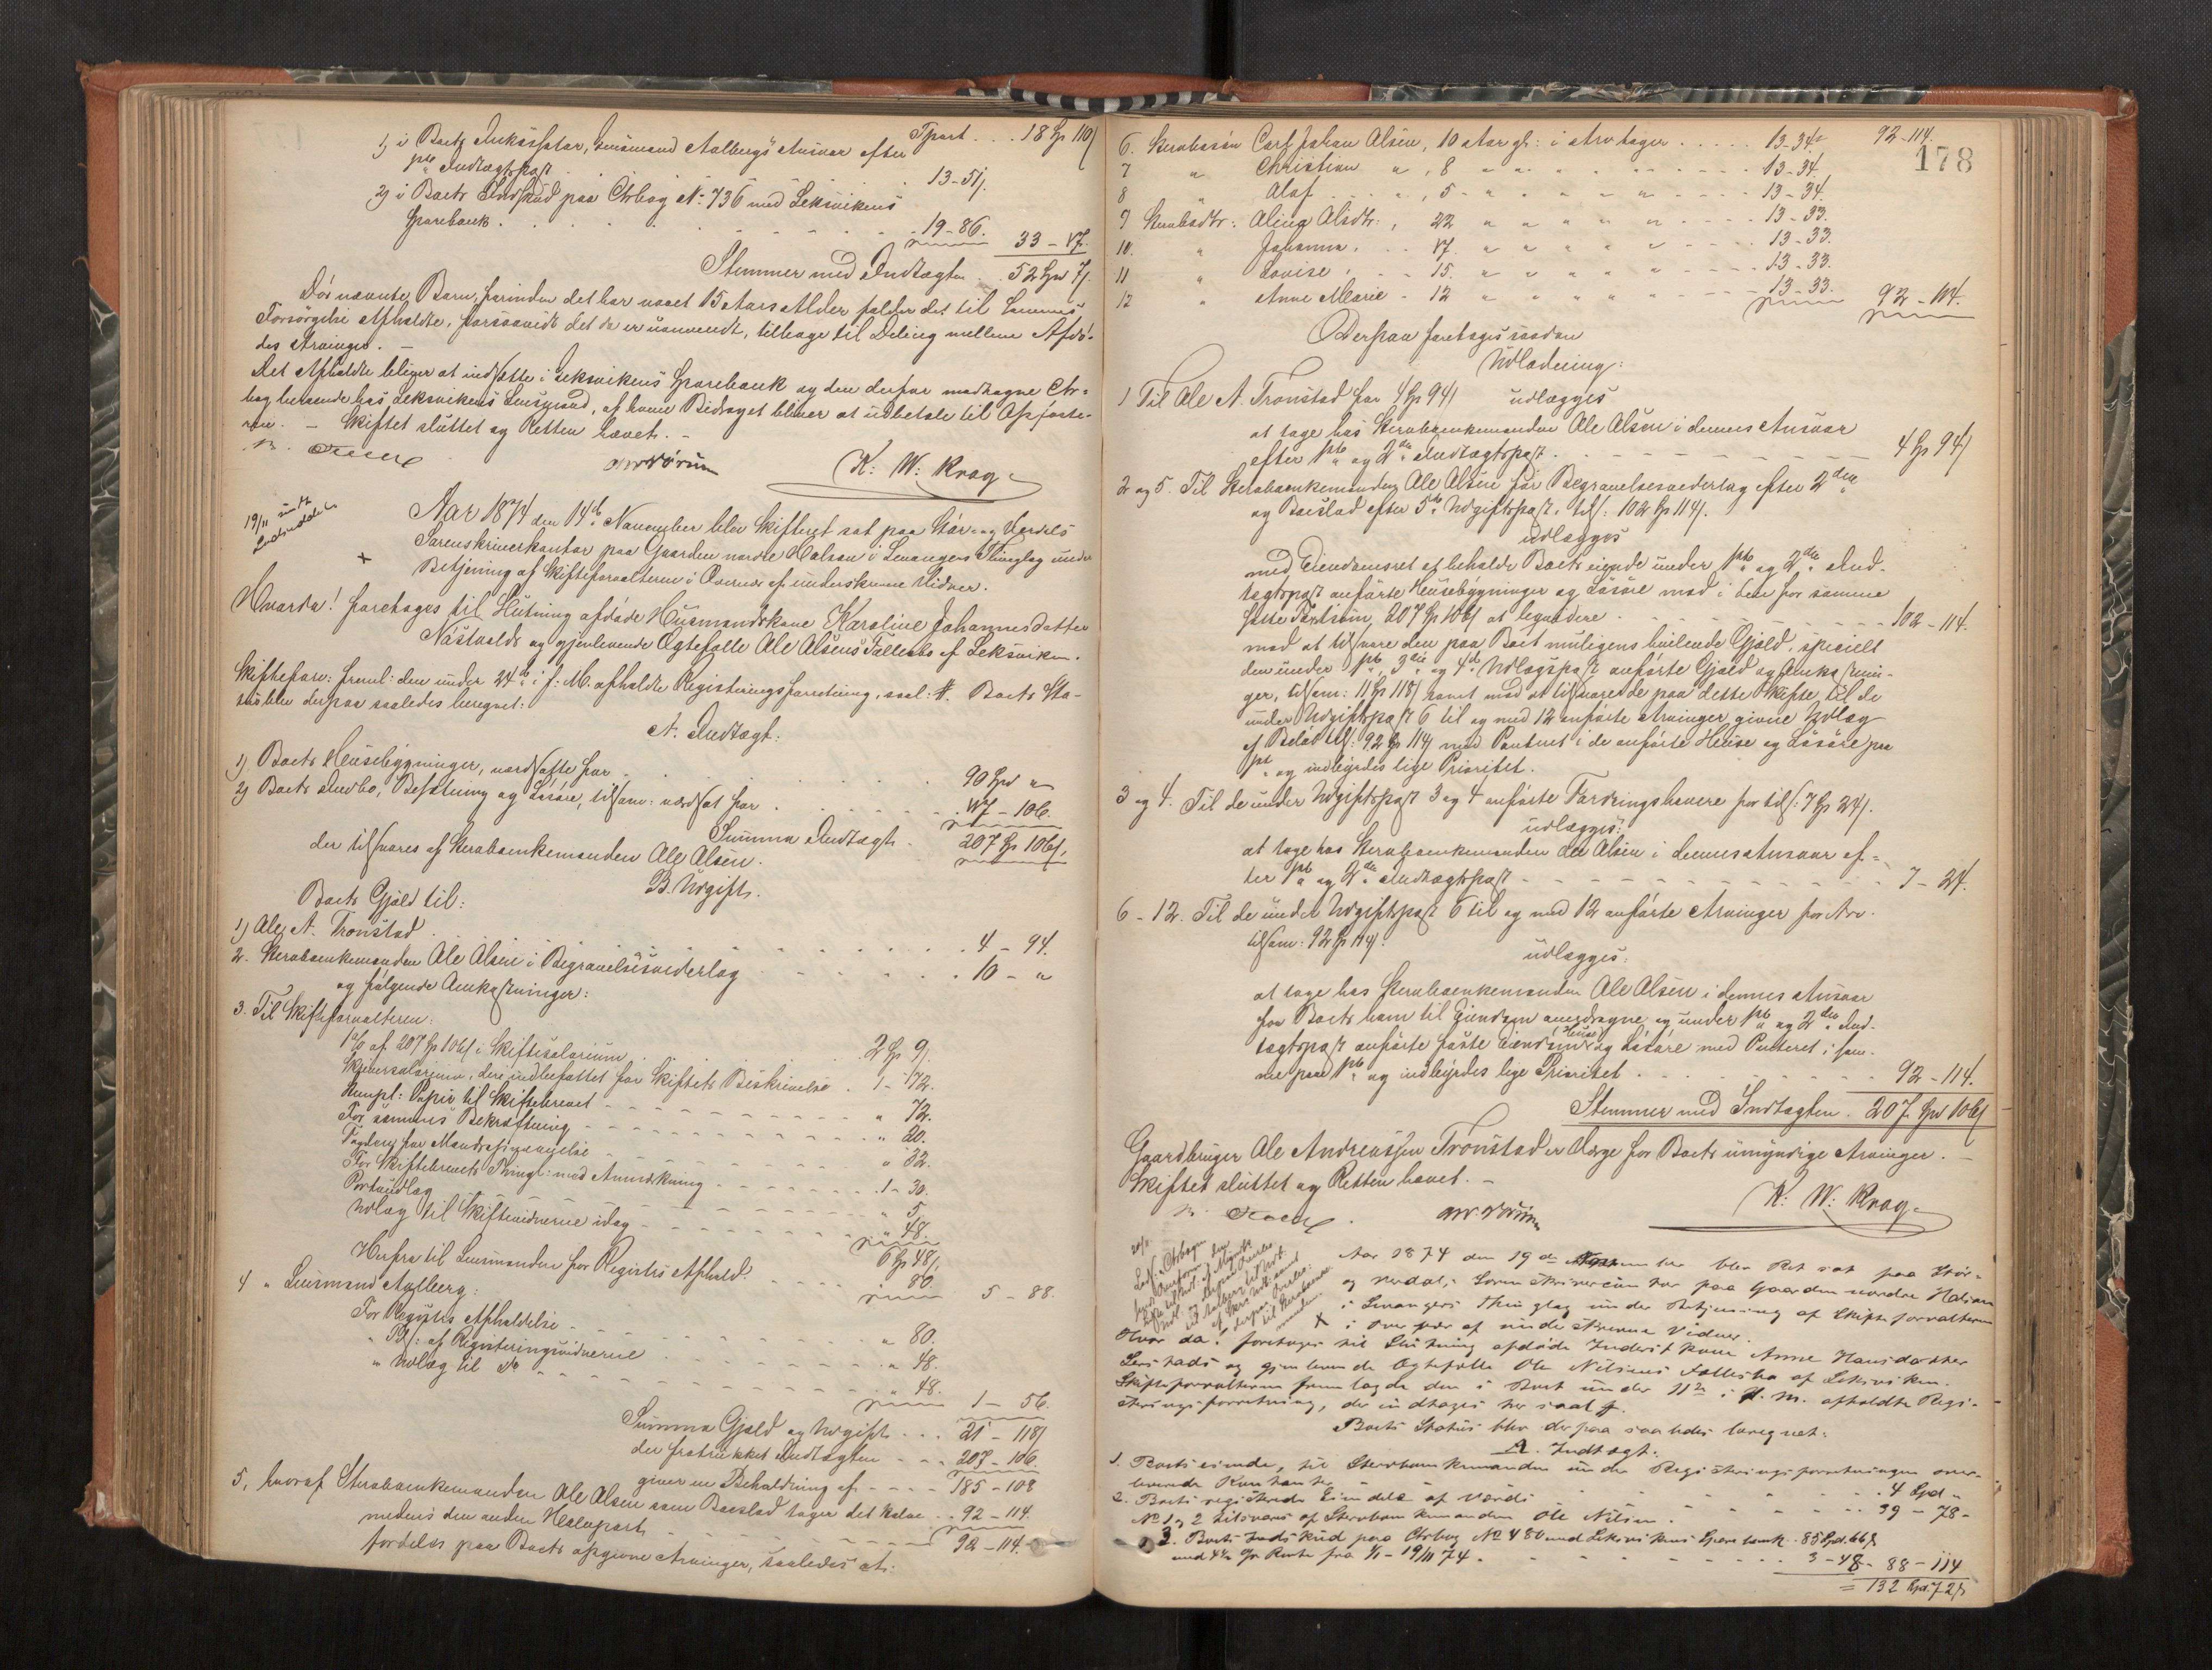 Tpart . . . 18 Sp 110 s
1) i Boets Inkassator, Lensmand Aalbergs Ansvar efter
pto Indtægtspost . 13-51 s.
2) i Boets Indskud paa Ctrbog No: 736 med Leksvikens
Sparebank . . . 19-86. 33 - 17.
Stemmer med Indtægten . . 52 Spd 7 s.
Dör nævnte Barn, forinden det har naaet 15 Aars Alder falder det til Sammes
Forsørgelse Afholdte, forsaavidt det da er uanvendt, tilbage til Deling mellem Afdö-
des Arvinger. -
Det Afholdte bliver at indsætte i Leksvikens Sparebank og den derfor modtagne Ctr=
bog beroende hos Leksvikens Lensmand, af hvem Bidraget bliver at udbetale til Opfostre-
ren. - Skiftet sluttet og Retten hævet. -
K: W: Krog
19/11
Aar 1874 den 14de November blev Skifteret sat paa Stör- og Værdals
Sorenskriverkontor paa Gaarden nordre Halsan i Levangers Thinglag under
Betjening af Skifteforvalteren i Overvær af underskrevne Vidner.
Hvorda! foretoges til Slutning afdöde Husmandskone Karoline Johannesdatter
Næstvolds og gjenlevende Ægtefælle Ole Olsens Fællesbo af Leksviken.
Skiftefor: freml: den under 24de i f: M. afholdte Registreringsforretning, saal: #. Boets Sta-
tus blev derpaa saaledes beregnet:
A. Indtægt:
1) Boets Huusebygninger, værdsatte for . . . 90 Spd "
2) Boets Indbo, Besætning og Lösöre, tilsam: værdsat for . . . 117 - 106.
Summa Indtægt . 207 Sp 106 s.
der tilsvares af Sterboenkemanden Ole Olsen.
B. Udgift.
Boets Gjæld til:
1) Ole A. Tronstad . . . 4 - 94.
2. Sterboenkemanden Ole Olsen i Begravelsesvederlag . . . 10 - "
og følgende Omkostninger:
3. Til Skifteforvalteren:
1% af 207 Sp 106 s i Skiftesalarium . . . 2 Sp 9 s.
Skriversalarium, deri indbefattet for Skiftets Beskrivelse . 1 - 72.
Stempl: Papir til Skiftebrevet - - - " 72.
For sammes Bekræftning - - - " 20.
- - - " 32.
For Skiftebrevets Thingl: med Anmærkning - - - 1 - 30.
Portoudlæg - - - " 5.
Udlæg til Skiftevidnerne idag - - - " 48.
6 Sp 48 s.
Herfra til Lensmanden for Registrs Afhold: - - - 80. 5 - 88.
4 " Lensmand Aalberg:
For Registrs Afholdelse - - - " 80.
" Tils: af Registreringsvidnerne - - - " 48.
" Udlæg til Do - - - " 48. 1 - 56.
Summa Gjæld og Udgift . . . 21 - 118 s
der fratrukket Indtægten - - - 207 - 106.
giver en Beholdning af - - - 185 - 108
5, hvoraf Sterboenkemanden Ole Olsen som Boeslod tager det halve . . 92 - 114.
medens den anden Halvpart - - - 92 - 114.
fordeles paa Boets opgivne Arvinger, saaledes at:
178
6. Sterbosön Carl Johan Olsen, 10 Aar gl: i Arv tager . . . 13-34. 92-114.
7 " Christian " , 8 " " " 13-34.
8 " Olaf " , 5 - " " " 13-34.
9 Sterbodtr: Olina Olsdtr: , 22 " " " 13-33.
10. " Johanna , 17. " " " 13-33.
11 " Lovise , 15. " " " 13-33.
12 " Anne Marie - 12 " " " 13-33. 92-114.
Derpaa foretoges saadan
Udlodning:
1 Til Ole A. Tronstad for 4 Sp 94 s udlægges
at tage hos Sterboenkemanden Ole Olsen i dennes Ansvar
efter 1ste og 2den Indtægtspost . - - - 4 Sp 94 s
2 og 5. Til Sterboenkemanden Ole Olsen for Begravelsesvederlag efter 2den
og Boeslod efter 5te Udgiftspost, tils: 102 Sp 114 s.
udlægges
med Eiendomsret at beholde Boets eiende under 1ste og 2den Ind-
tægtspost anförte Huusebygninger og Lösöre mod i den for samme
satte Taxtsum, 207 Sp 106 s at liqvidere . - - - 102 - 114.
mod at tilsvare den paa Boet muligens hvilende Gjæld, specielt
den under 1ste, 3die og 4de Udlægspost anförte Gjæld og Omkostnin-
ger, tilsam: 11 Sp 118 s samt mod at tilsvare de paa dette Skifte, til de
under Udgiftspost 6 til og med 12 anförte Arvinger givne Udlæg
af Belöb tils: 92 Sp 114 s, med Panteret i de anförte Huse og Lösöre paa
1ste og indbyrdes lige Prioritet.
3 og 4. Til de under Udgiftspost 3 og 4 anförte Fordringshavere for tils: 7 Sp 24 s.
udlægges:
at tage hos Sterboenkemanden Ole Olsen i dennes Ansvar ef=
ter 1ste og 2den Indtægtspost - - - 7 - 24.
6-12. Til de under Udgiftspost 6 til og med 12 anförte Arvinger for Arv.
tilsam: 92 Sp 114 s.
udlægges:
at tage hos Sterboenkemanden Ole Olsen i dennes Ansvar
for Boets ham til Eiendom overdragne og under 1ste og 2den Ind-
tægtspost anförte faste Eiendom (Huse) og Lösöre med Panteret i sam-
me paa 1ste og indbyrdes lige Prioritet . - - - 92 - 114.
Stemmer med Indtægten . 207 Spd 106 s
Gaardbruger Ole Andreassen Tronstad er Værge for Boets umyndige Arvinger. -
Skiftet sluttet og Retten hævet. -
K: W: Krog
Aar 1874 den 19de November blev Ret sat paa Stör-
og Værdal, Sorenskrivercontor paa Gaarden nordre Halsan
i Levangers Thinglag under Betjening af Skifteforvalteren
i Overvær af underskrevne Vidner.
Hvor da! foretoges til Slutning afdöde Inderstkone Anne Hansdatter
Lerstads og gjenlevende Ægtefælle Ole Nilsens Fællesbo af Leksviken.
Skifteforvalteren fremlagde den i Boet under 11te i f. M. afholdte Regi-
streringsforretning, der indtages her saal #.
Boets Status blev derpaa saaledes beregnet:
A. Indtægt.
1. Boets eiende, til Sterboenkemanden under Registreringsforretningen over-
leverede Kontanter - - - 4 Spd "
2. Boets registrerede Eiendele af Værdi - - - 39 - 78 -
No 1 og 2 tilsvares af Sterboenkemanden Ole Nilsen.
3. Boets Indskud paa Ctrbog No 480 med Leksvikens Sparebank . 85 Spd. 66 s
med 4% Rente fra 1/1 - 19/11 74. - - - 3 - 48 - 88 - 114
= 132 Spd. 72 s